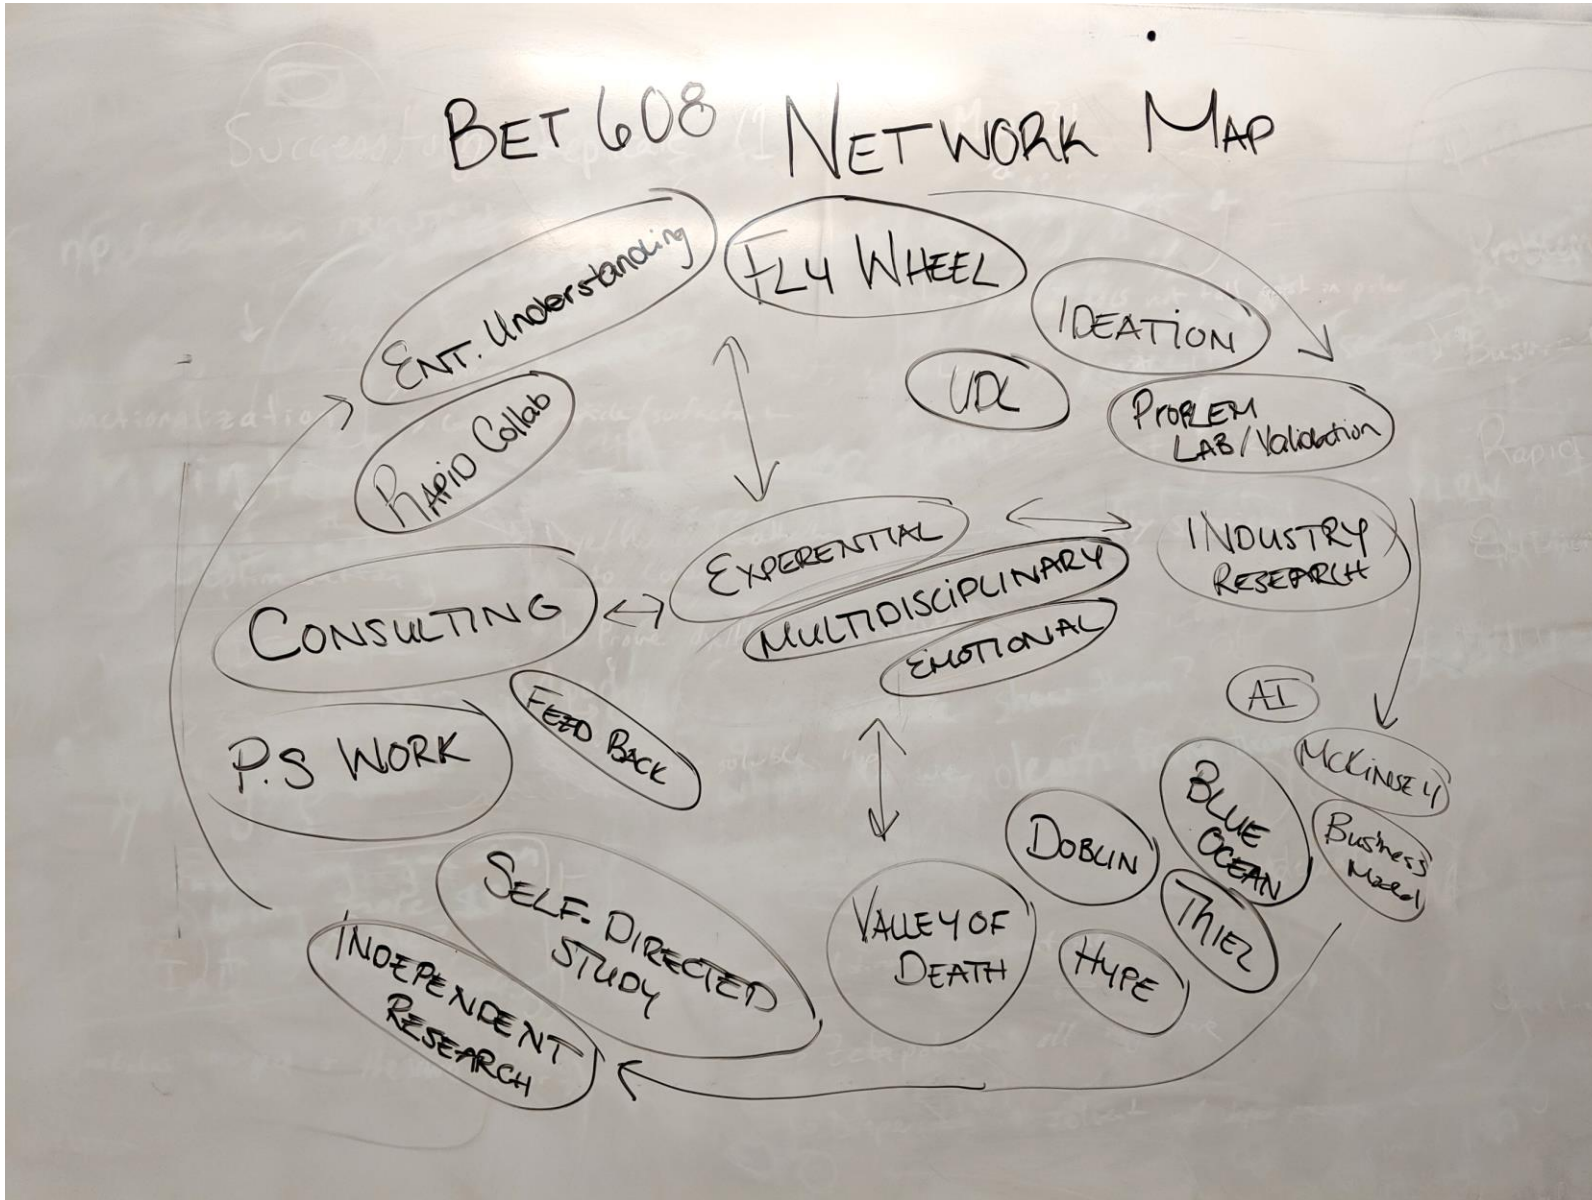 BET 608 NETWORK MAP
ENT. Understanding
FLY WHEEL
IDEATION
UDL
PROBLEM
LAB/Validation
RAPID Collab
EXPERENTIAL
MULTIDISCIPLINARY
EMOTIONAL
INDUSTRY
RESEARCH
CONSULTING
FEED BACK
P.S WORK
AI
MCKINSEY
BLUE
OCEAN
Business
Model
DOBLIN
THIEL
HYPE
VALLEY OF
DEATH
SELF-DIRECTED
STUDY
INDEPENDENT
RESEARCH